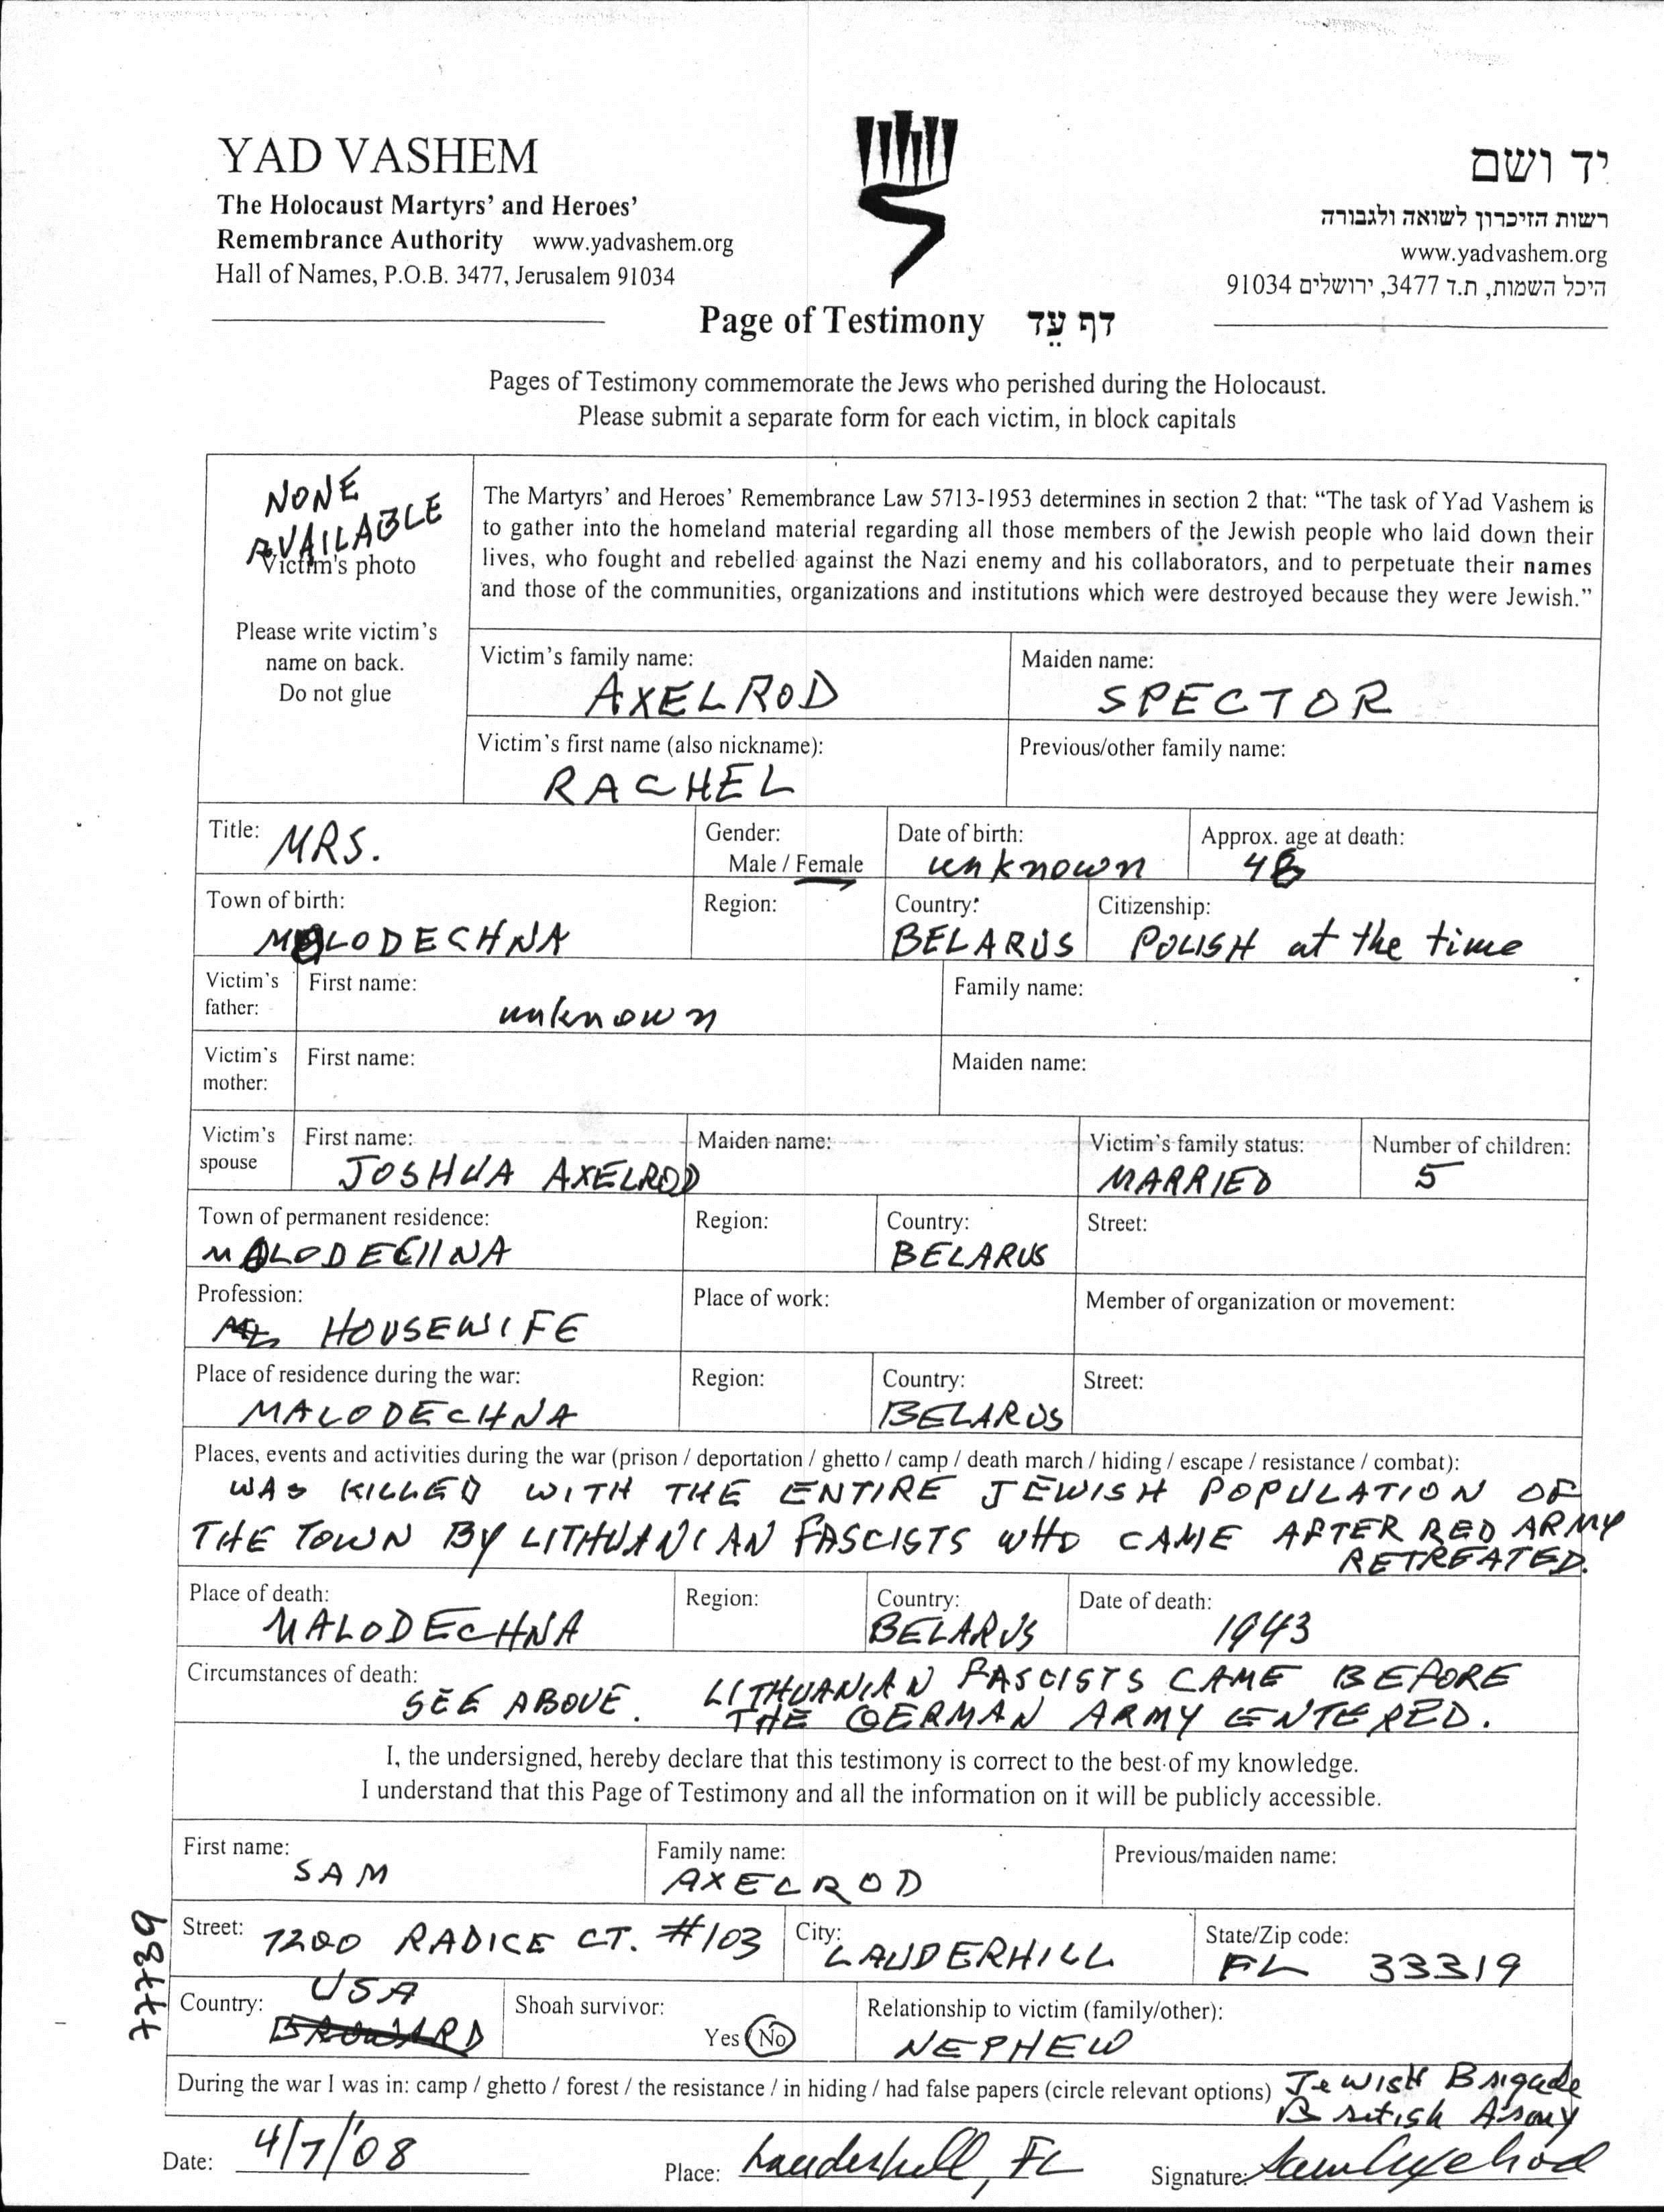 YAD VASHEM
The Holocaust Martyrs' and Heroes'
Remembrance Authority www.yadvashem.org
Hall of Names, P.O.B. 3477, Jerusalem 91034
יד ושם
רשות הזיכרון לשואה ולגבורה
www.yadvashem.org
היכל השמות, ת.ד 3477, ירושלים 91034
Page of Testimony דף עֵד
Pages of Testimony commemorate the Jews who perished during the Holocaust.
Please submit a separate form for each victim, in block capitals
NONE
AVAILABLE
Victim's photo
Please write victim's
name on back.
Do not glue
The Martyrs' and Heroes' Remembrance Law 5713-1953 determines in section 2 that: "The task of Yad Vashem is
to gather into the homeland material regarding all those members of the Jewish people who laid down their
lives, who fought and rebelled against the Nazi enemy and his collaborators, and to perpetuate their names
and those of the communities, organizations and institutions which were destroyed because they were Jewish."
Victim's family name: Maiden name:
AXELROD SPECTOR
Victim's first name (also nickname): Previous/other family name:
RACHEL
Title: MRS. Gender: Date of birth: Approx. age at death:
Male / Female unknown 48
Town of birth: Region: Country: Citizenship:
MALODECHNA BELARUS POLISH at the time
Victim's father: First name: Family name:
unknown
Victim's mother: First name: Maiden name:
Victim's spouse First name: Maiden name: Victim's family status: Number of children:
JOSHUA AXELROD MARRIED 5
Town of permanent residence: Region: Country: Street:
MALODECHNA BELARUS
Profession: Place of work: Member of organization or movement:
HOUSEWIFE
Place of residence during the war: Region: Country: Street:
MALODECHNA BELARUS
Places, events and activities during the war (prison / deportation / ghetto / camp / death march / hiding / escape / resistance / combat):
WAS KILLED WITH THE ENTIRE JEWISH POPULATION OF
THE TOWN BY LITHUANIAN FASCISTS WHO CAME AFTER RED ARMY
RETREATED.
Place of death: Region: Country: Date of death:
MALODECHNA BELARUS 1943
Circumstances of death:
SEE ABOVE. LITHUANIAN FASCISTS CAME BEFORE
THE GERMAN ARMY ENTERED.
I, the undersigned, hereby declare that this testimony is correct to the best of my knowledge.
I understand that this Page of Testimony and all the information on it will be publicly accessible.
First name: Family name: Previous/maiden name:
SAM AXELROD
Street: 7200 RADICE CT. #103 City: LAUDERHILL State/Zip code: FL 33319
Country: USA Shoah survivor: Relationship to victim (family/other):
BROWARD Yes / No NEPHEW
During the war I was in: camp / ghetto / forest / the resistance / in hiding / had false papers (circle relevant options) Jewish Brigade
British Army
Date: 4/7/'08 Place: Lauderhill, FL Signature: Sam Axelrod